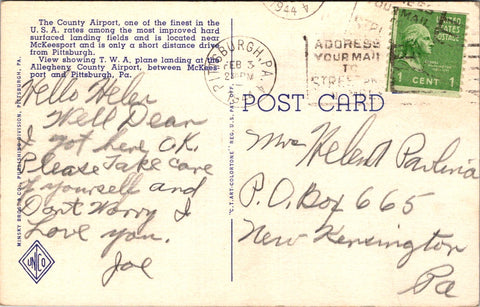 The County Airport, one of the finest in the
U. S. A. rates among the most improved hard
surfaced landing fields and is located near
McKeesport and is only a short distance drive
from Pittsburgh.
View showing T. W. A. plane landing at the
Allegheny County Airport, between McKees-
port and Pittsburgh, Pa.
Hello Helen
Well Dear
I got here O.K.
Please Take care
of yourself and
Dont Worry I
Love you.
Joe
UNCO
MINSKY BROS. & CO., PUBLISHING DIVISION, PITTSBURGH, PA.
"C.T. ART-COLORTONE" REG. U.S. PAT. OFF.
PITTSBURGH, PA.
FEB 3
2 PM
1944
ADDRESS
YOUR MAIL
TO
STREET
UNITED STATES POSTAGE
1 CENT 1
POST CARD
Mrs Helen Paulina
P.O. Box 665
New Kensington
Pa